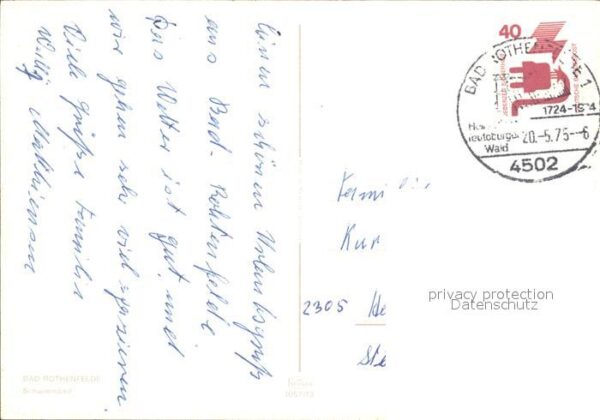 Einen schönen Urlaubsgruß
aus Bad-Rothenfelde.
Das Wetter ist gut und
wir gehen sehr viel spazieren.
Viele Grüße Familie
Willy
40
BAD ROTHENFELDE 1
1724-1974
Teutoburger
Wald
20.-5.75--6
4502
Familie
Kur
2305 He
Ste
privacy protection
Datenschutz
BAD ROTHENFELDE
Schwimmbad